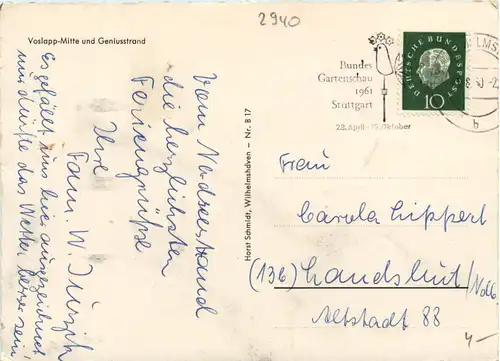 2940
Voslapp-Mitte und Geniusstrand
Bundes
Gartenschau
1961
Stuttgart
28. April - 15. Oktober
DEUTSCHE BUNDESPOST
10
b
Vom Nordseestrand
die herzlichsten
Feriengrüße
Ihre
Fam. W.
Es gefällt uns hier ausgezeichnet
nur dürfte das Wetter besser sein!
Horst Schmidt, Wilhelmshaven - Nr. B 17
Frau
Carola Lippert
(13b) Landshut/Ndb.
Altstadt 88
4,-